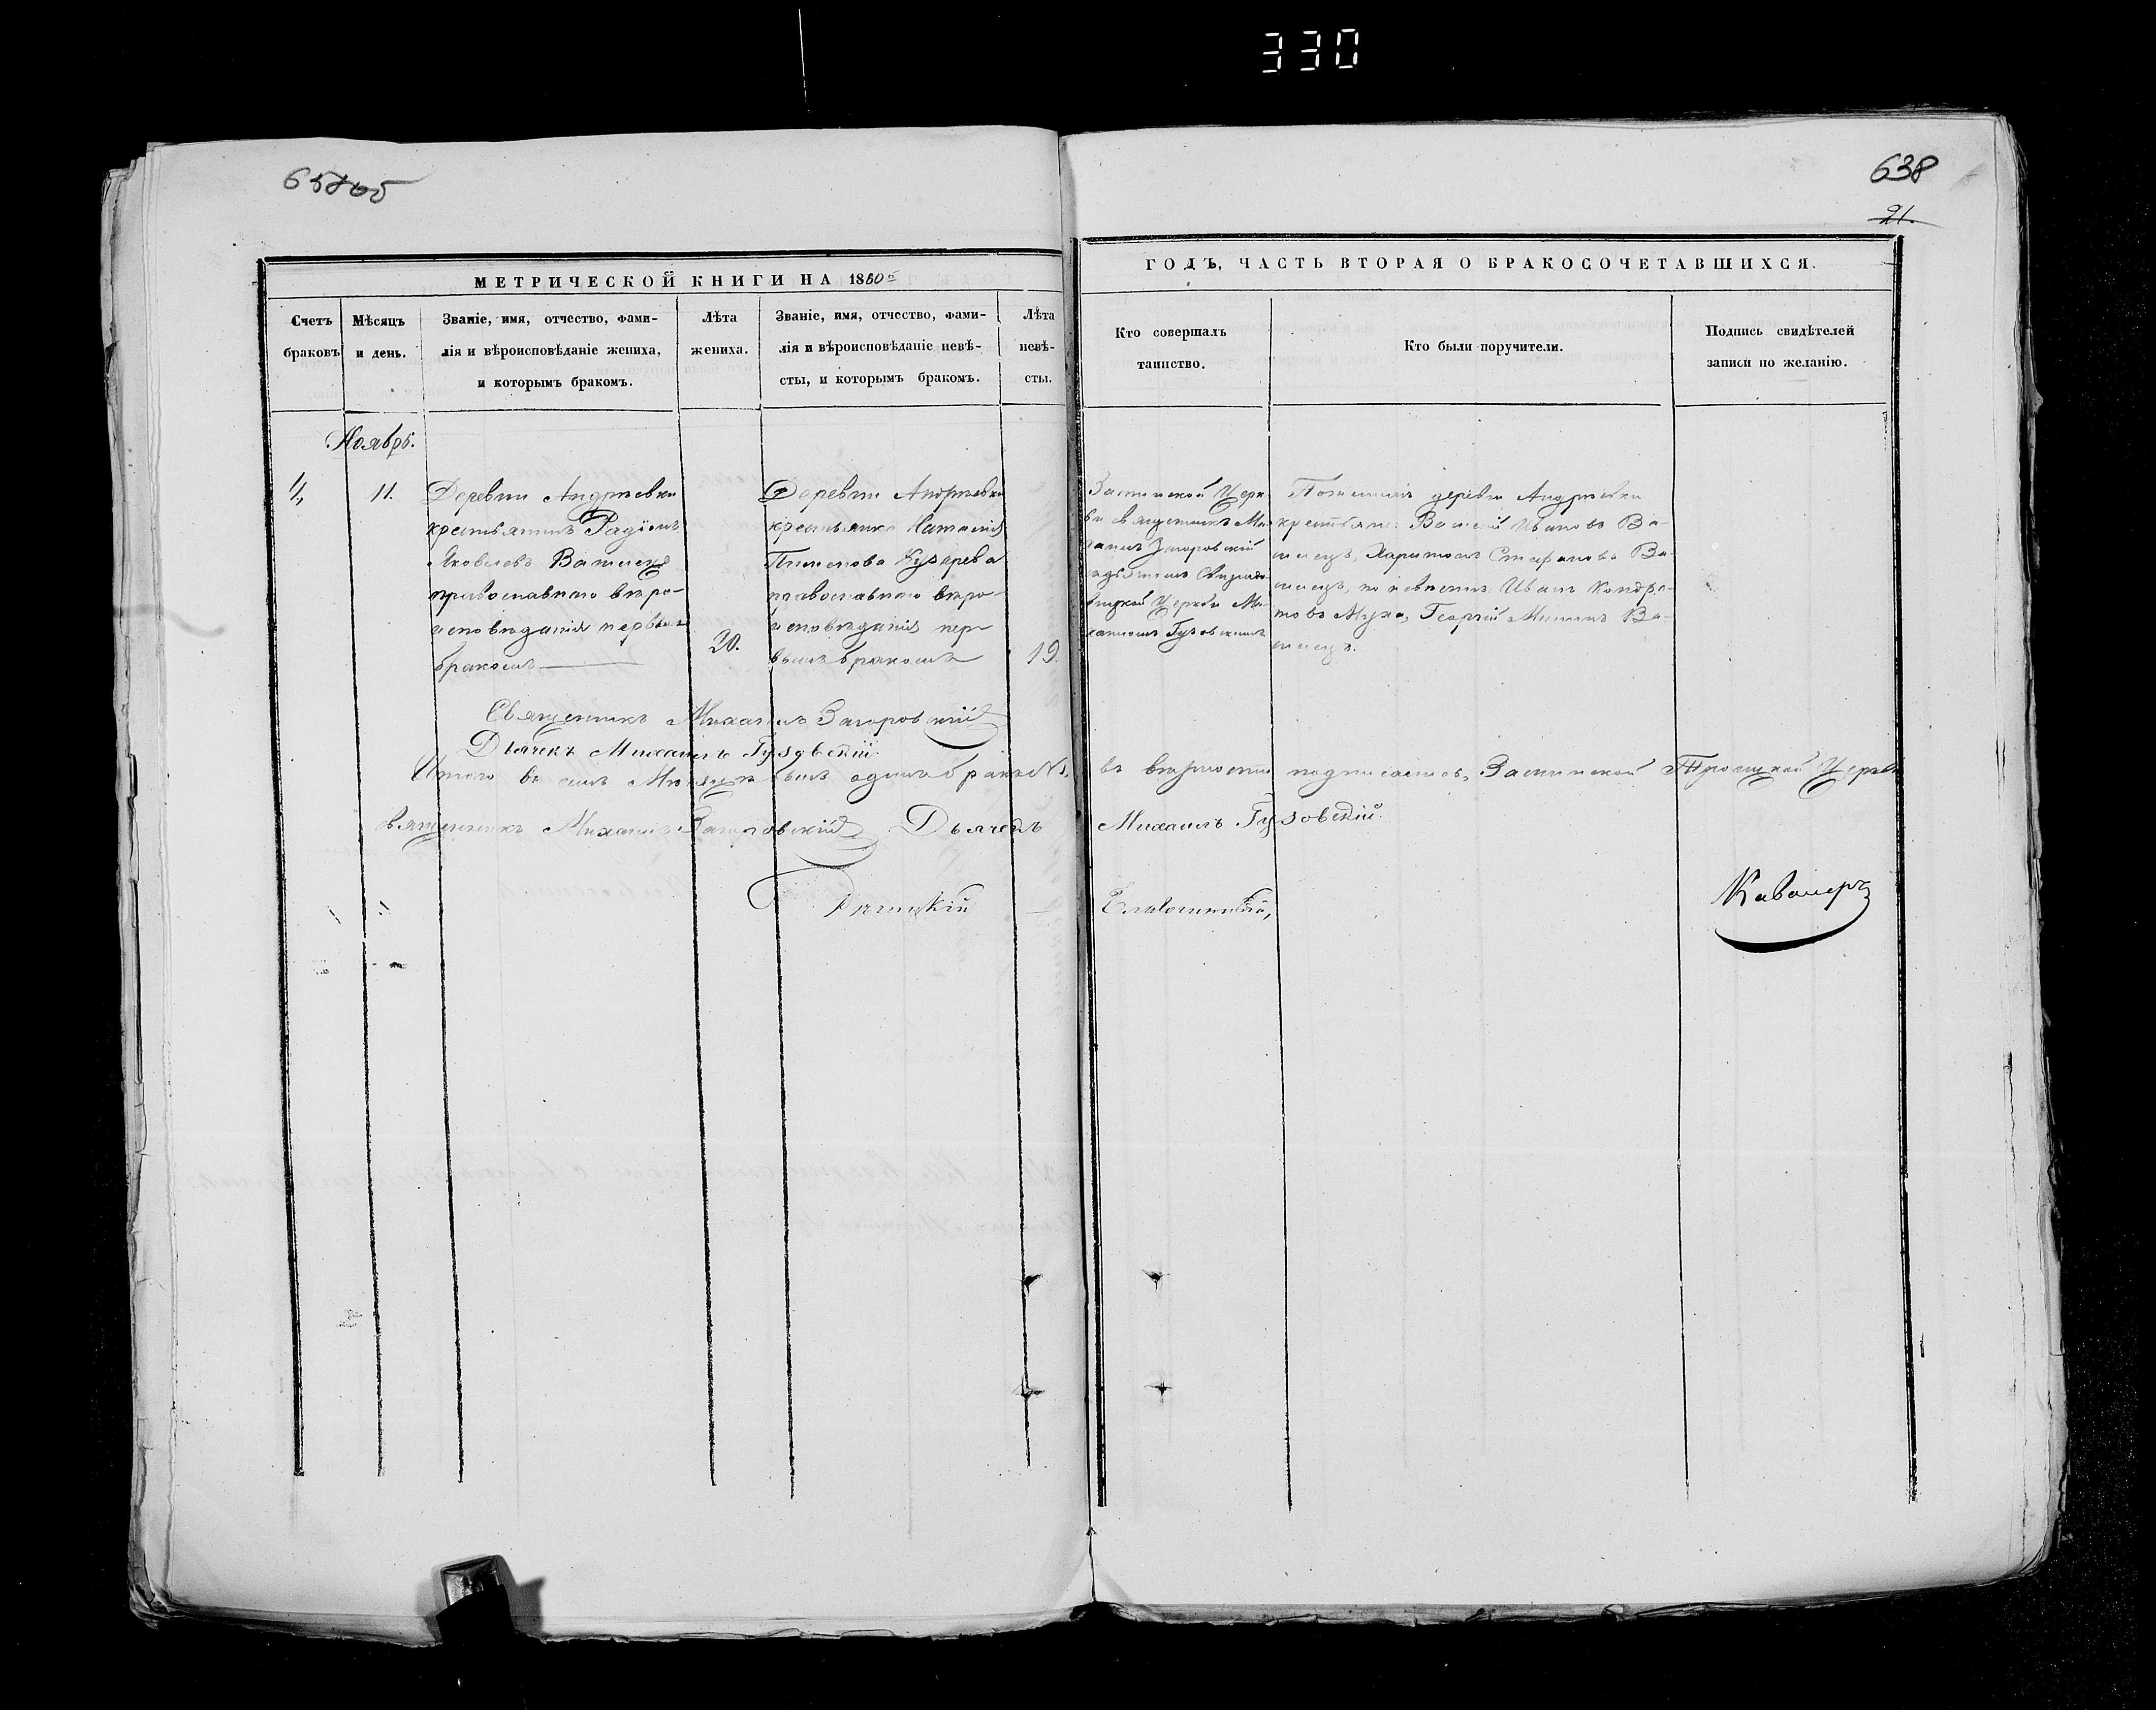 330
638
21.
МЕТРИЧЕСКОЙ КНИГИ НА 1860й
ГОДЪ, ЧАСТЬ ВТОРАЯ О БРАКОСОЧЕТАВШИХСЯ.
Счетъ
браковъ
Мѣсяцъ
и день.
Званіе, имя, отчество, фами-
лія и вѣроисповѣданіе жениха,
и которымъ бракомъ.
Лѣта
жениха.
Званіе, имя, отчество, фами-
лія и вѣроисповѣданіе невѣ-
сты, и которымъ бракомъ.
Лѣта
невѣ-
сты.
Кто совершалъ
таинство.
Кто были поручители.
Подпись свидѣтелей
записи по желанію.
Ноябрь.
4,
11.
Деревни Андреевки
крестьянинъ Радіонъ
Яковлевъ
православнаго вѣро-
исповѣданія первымъ
бракомъ
20.
Деревни Андреевки
крестьянка Наталія
Пименова Кухарева
православнаго вѣро-
исповѣданія пер
вымъ бракомъ
19.
Церк
ви священникъ Ми
хаилъ Загоровскій
Церкви Ми-
хаиломъ Гузовскимъ
деревни Андреевки
крестьяне: Ивановъ Ва-
Харитонъ Стефановъ Ва-
по невѣстѣ Иванъ Кондра-
товъ Муха, Георгій Ва-
Священникъ Михаилъ Загоровскій
Дьячекъ Михаилъ Гузовскій.
Итого въ семъ Мѣсяцѣ одинъ бракъ
въ вѣрности подписались, Троицкой Церкви
священникъ Михаилъ Загоровскій Дьячекъ
Михаилъ Гузовскій.